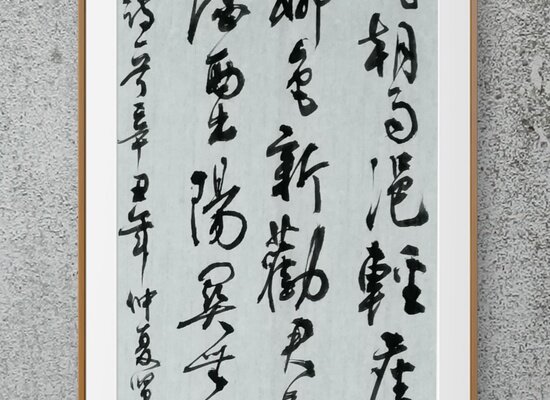 朝雨浥輕塵
柳色新勸君
酒西出陽關無
詩一首辛丑年仲夏